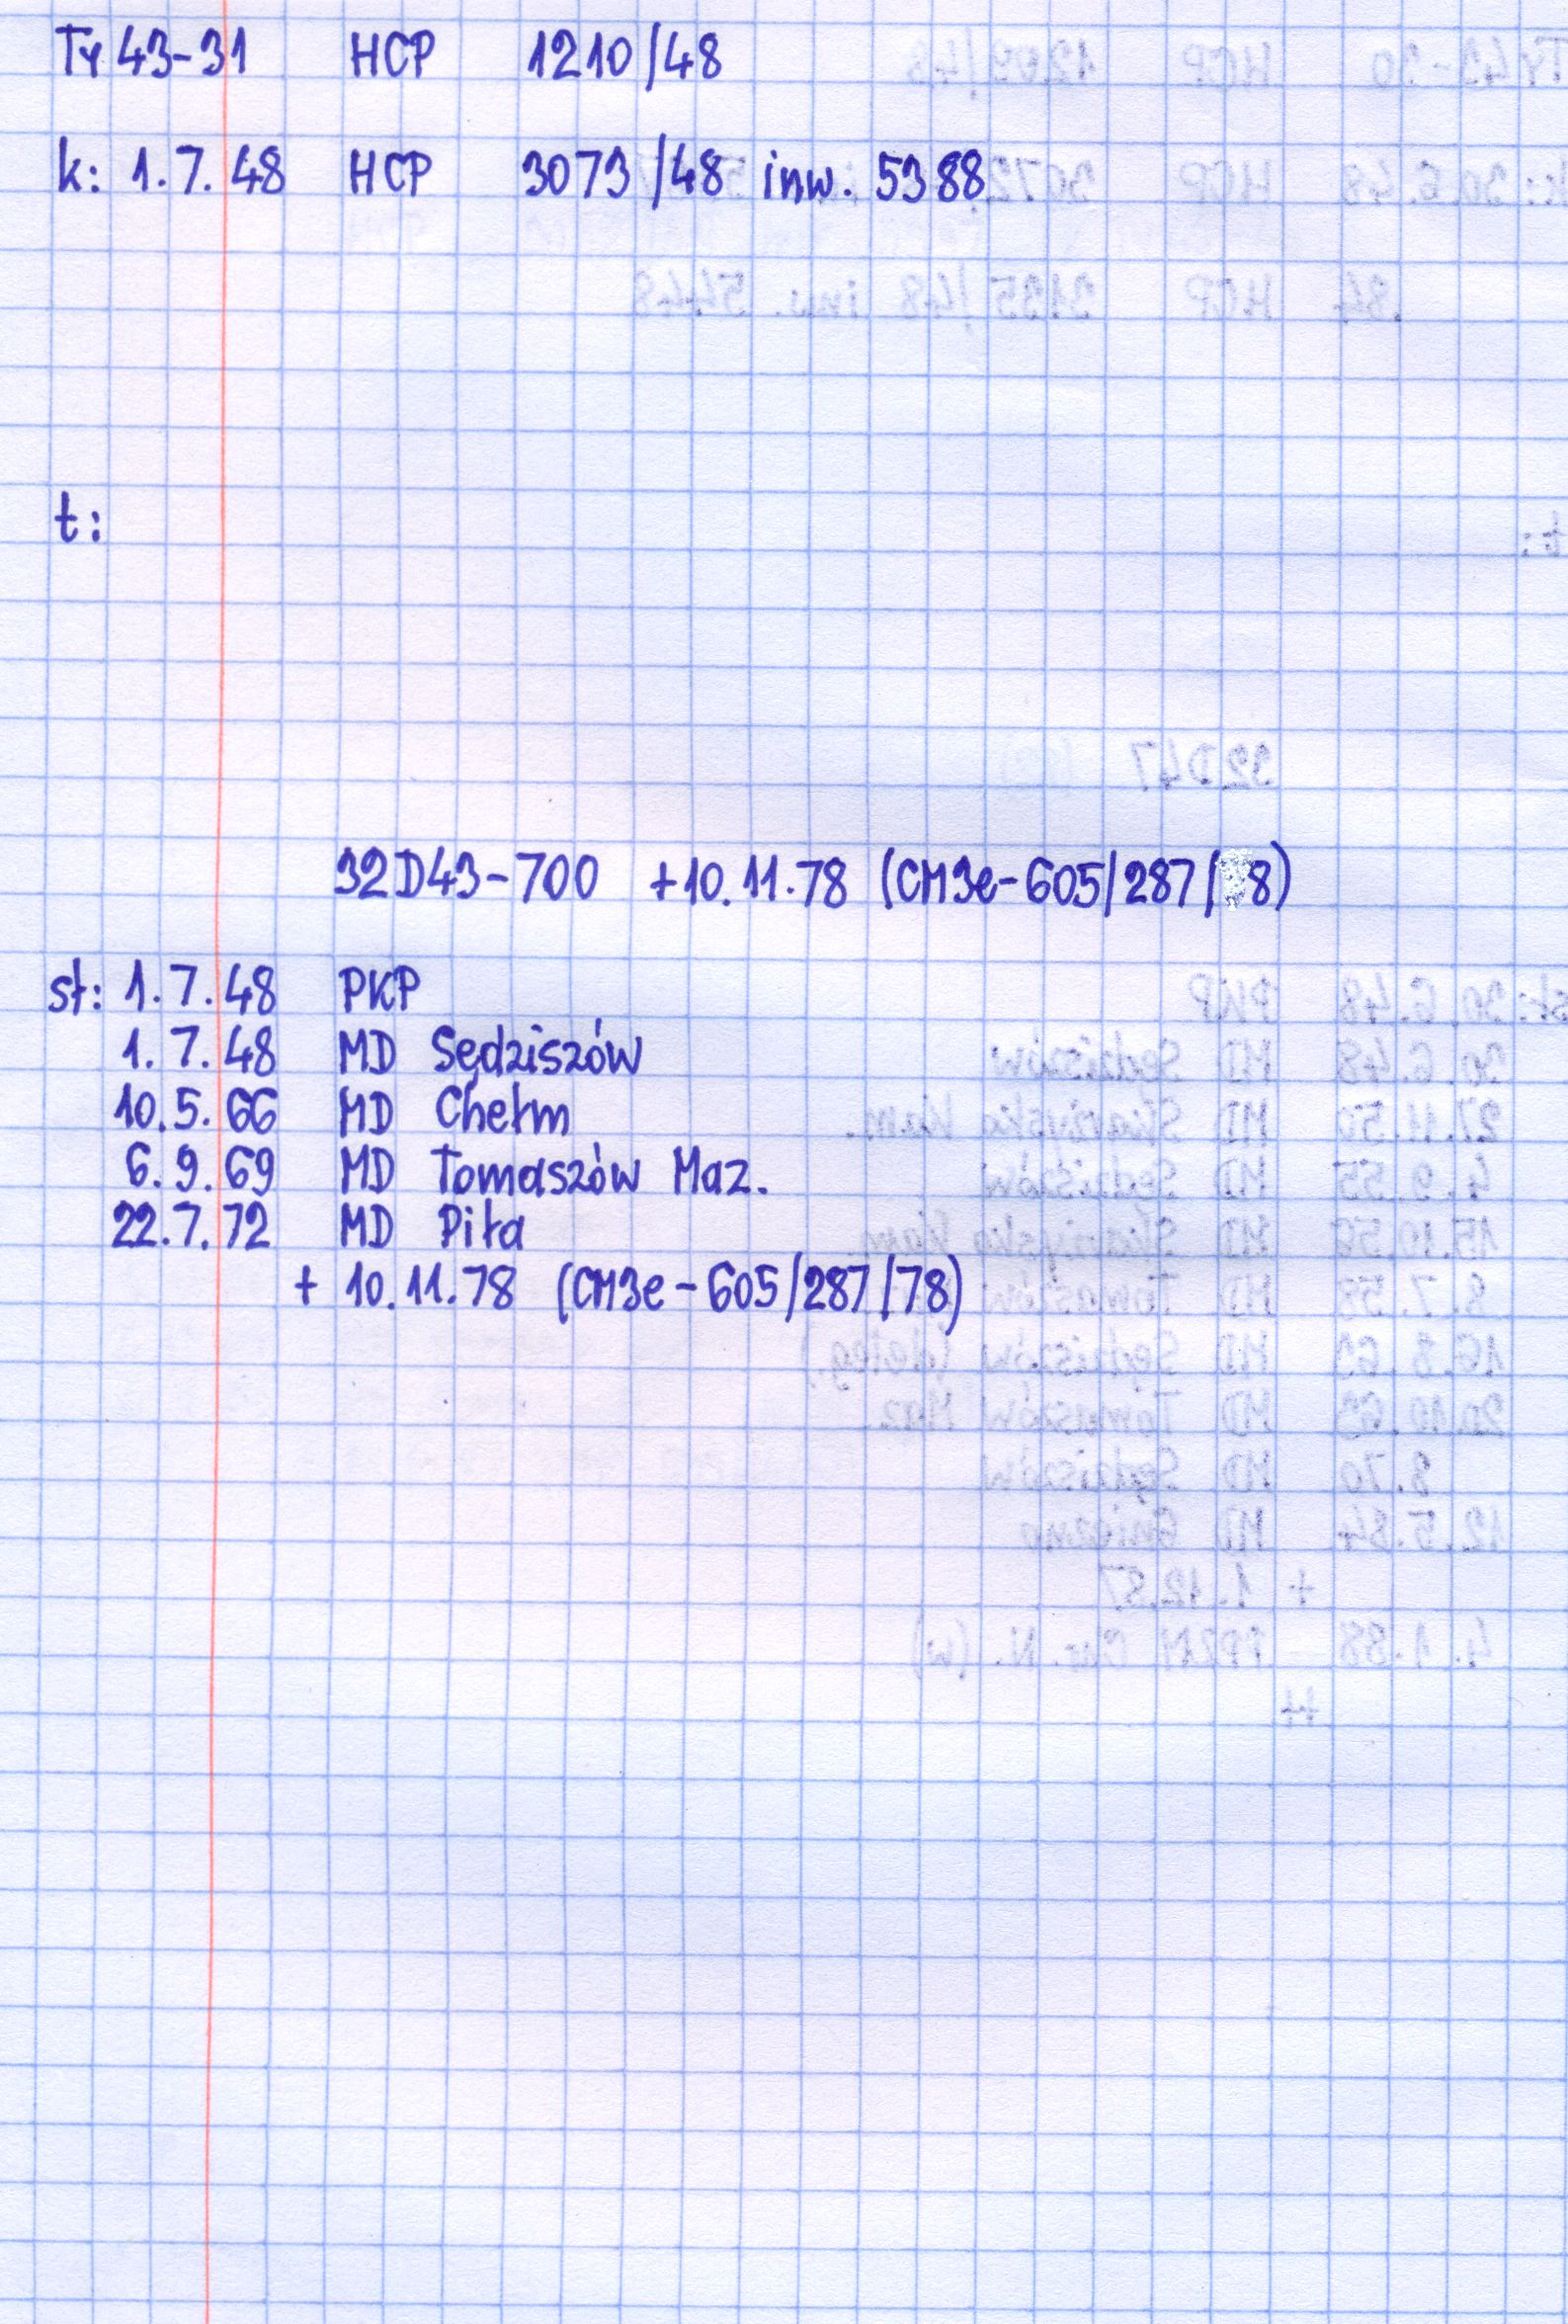 Ty 43-31 HCP 1210/48
k: 1.7.48 HCP 3073/48 inw. 5388
t:
32D43-700 +10.11.78 (CM3e-605/287/78)
st: 1.7.48 PKP
1.7.48 MD Sędziszów
10.5.66 MD Chełm
6.9.69 MD Tomaszów Maz.
22.7.72 MD Piła
+ 10.11.78 (CM3e-605/287/78)